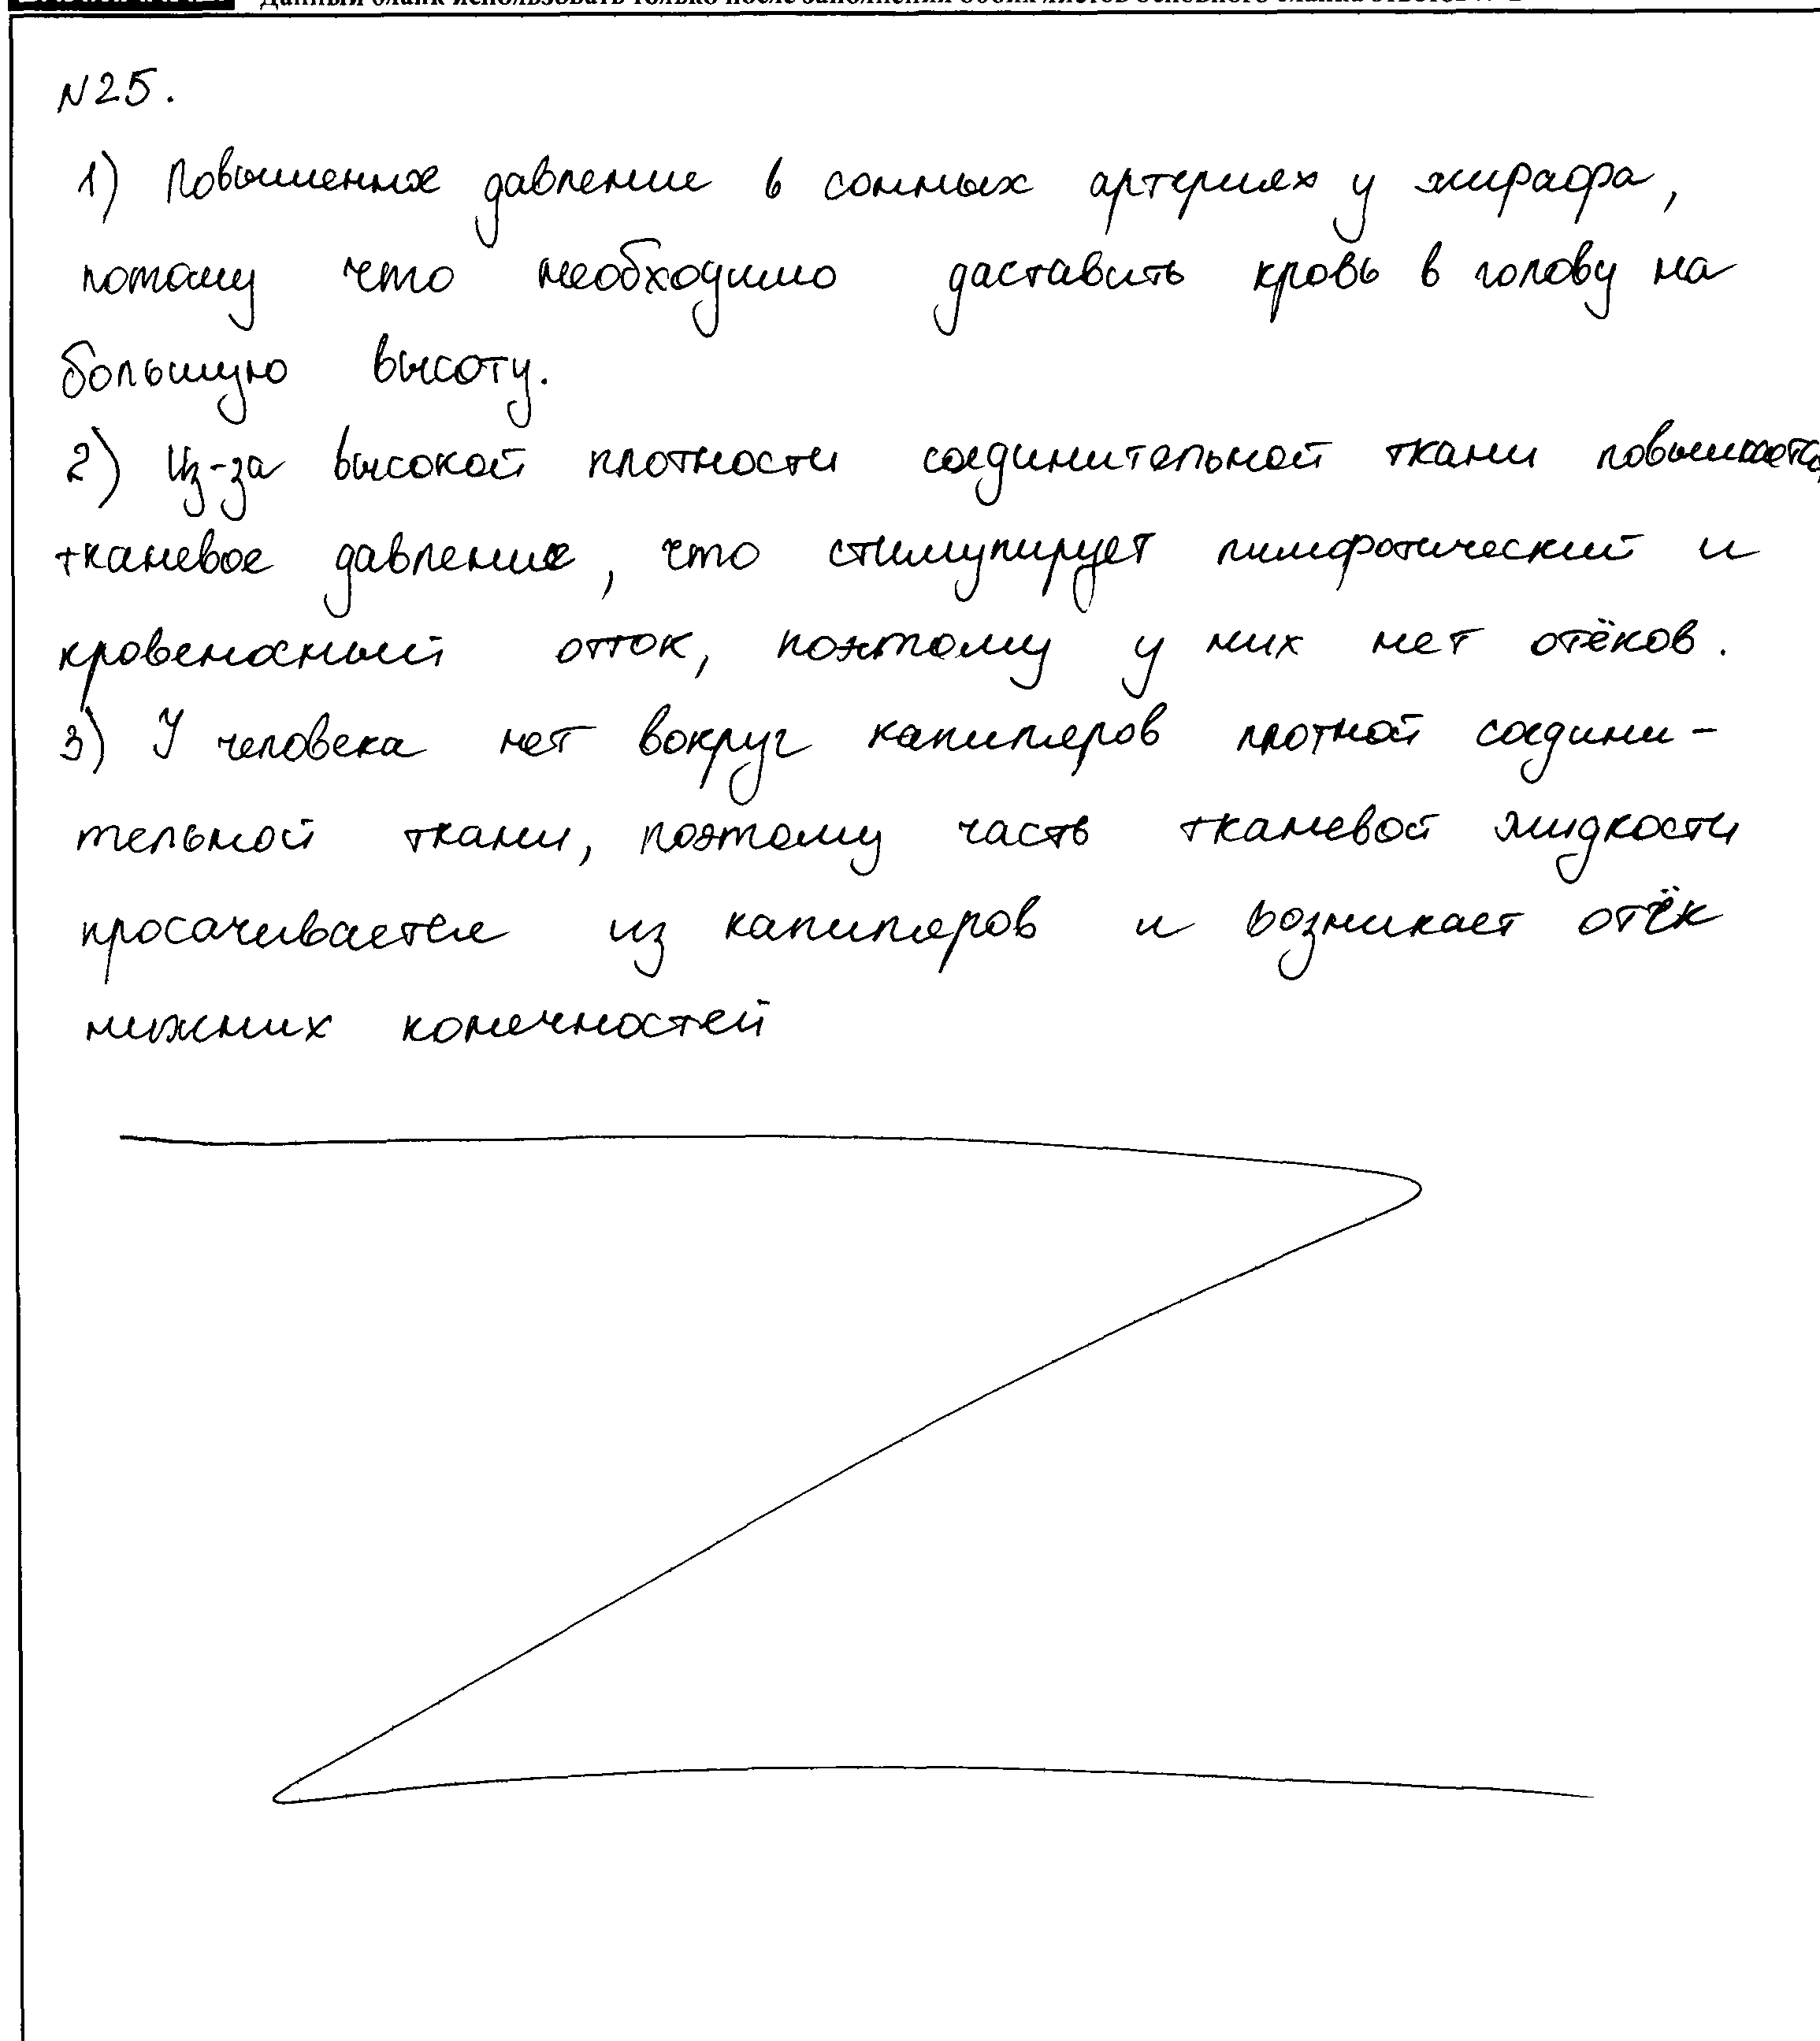 N25.
1) Повышенное давление в сонных артериях у жирафа,
потому что необходимо даставить кровь в голову на
большую высоту.
2) Из-за высокой плотности соединительной ткани повышается
тканевое давление, что стимулирует лимфатический и
кровеносный отток, поэтому у них нет отёков.
3) У человека нет вокруг капиляров плотной соедини-
тельной ткани, поэтому часть тканевой жидкости
просачивается из капиляров и возникает отёк
нижних конечностей